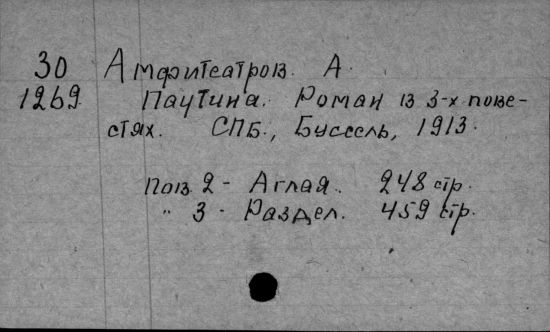 30 Амфитеатров. А.
1269. Паутина. Роман в 3-х пове-
стях. СПБ., Буссель, 1913.
Пов. 2 - Аглая. 248 стр.
" 3 - Раздел. 459 стр.